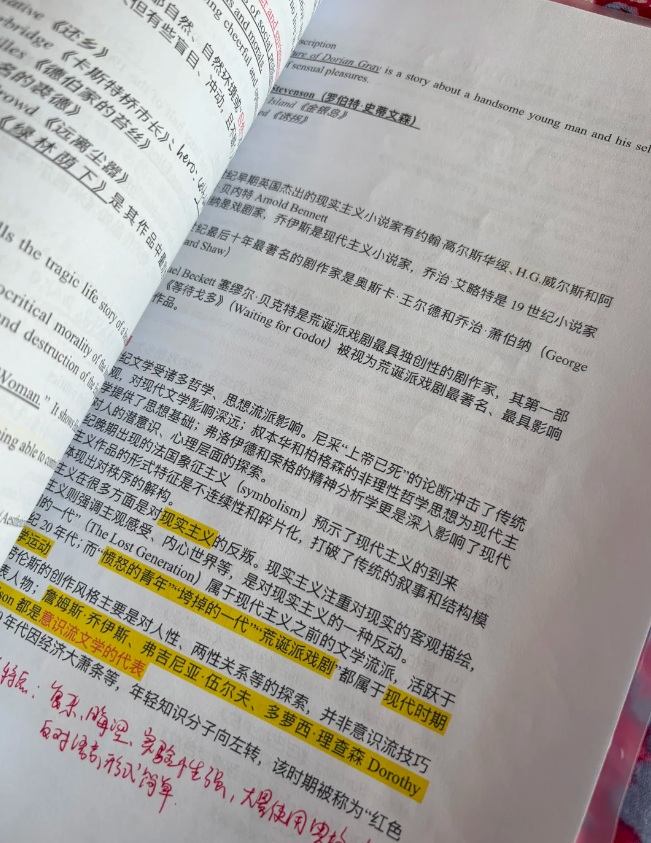 ative《还乡》
erbridge《卡斯特桥市长》、hero.
illes《德伯家的苔丝》
名的裘德》
rowd《远离尘嚣》
《绿林荫下》是其作品中
部自然、自然环境或
但有些盲目、冲动，且不
ing cheerful and
lls the tragic life story of a
ocritical morality of the
and destruction of the
Woman." It shows
being able to
scription
ure of Dorian Gray is a story about a handsome young man and his sel
f sensual pleasures.
Stevenson（罗伯特·史蒂文森）
Island《金银岛》
ed《诱拐》
纪早期英国杰出的现实主义小说家有约翰·高尔斯华绥、H.G.威尔斯和阿
·贝内特 Arnold Bennett
纳是戏剧家，乔伊斯是现代主义小说家，乔治·艾略特是 19 世纪小说家
纪最后十年最著名的剧作家是奥斯卡·王尔德和乔治·萧伯纳（George
ard Shaw）
uel Beckett 塞缪尔·贝克特是荒诞派戏剧最具独创性的剧作家，其第一部
《等待戈多》（Waiting for Godot）被视为荒诞派戏剧最著名、最具影响
作品。
纪文学受诸多哲学、思想流派影响。尼采“上帝已死”的论断冲击了传统
观，对现代文学影响深远；叔本华和柏格森的非理性哲学思想为现代主
学提供了思想基础；弗洛伊德和荣格的精神分析学更是深入影响了现代
对人的潜意识、心理层面的探索。
纪晚期出现的法国象征主义（symbolism）预示了现代主义的到来
主义作品的形式特征是不连续性和碎片化，打破了传统的叙事和结构模
体现出对秩序的解构。
主义在很多方面是对现实主义的反叛。现实主义注重对现实的客观描绘，
主义则强调主观感受、内心世界等，是对现实主义的一种反动。
的一代”（The Lost Generation）属于现代主义之前的文学流派，活跃于
纪 20 年代；而“愤怒的青年”“垮掉的一代”“荒诞派戏剧”都属于现代时期
学运动
劳伦斯的创作风格主要是对人性、两性关系等的探索，并非意识流技巧
表人物；詹姆斯·乔伊斯、弗吉尼亚·伍尔夫、多萝西·理查森 Dorothy
son 都是意识流文学的代表
0 年代因经济大萧条等，年轻知识分子向左转，该时期被称为“红色
特点：复杂、晦涩、实验性强，大量使用
反对语言形式简单